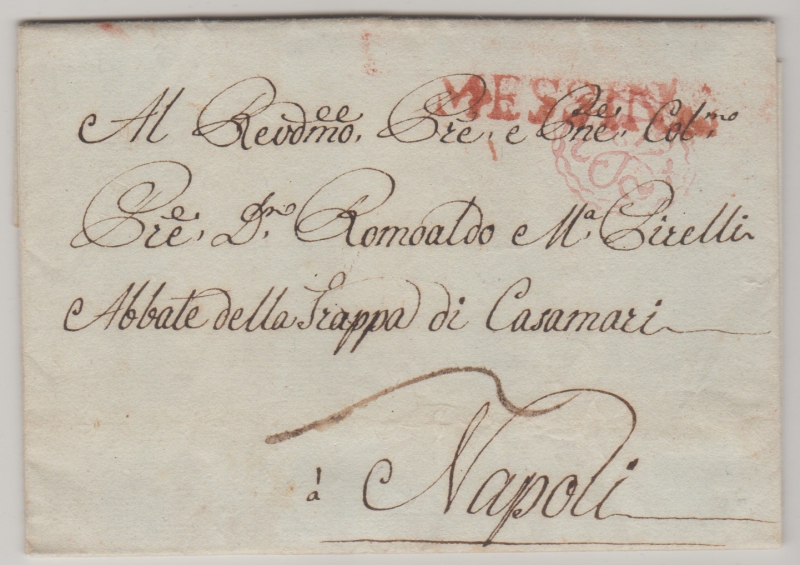 MESSINA
Al Revdmo, Pre, e Pne, Colmo
Pre, Dn Romoaldo Ma Pirelli
Abbate della Trappa di Casamari
à Napoli